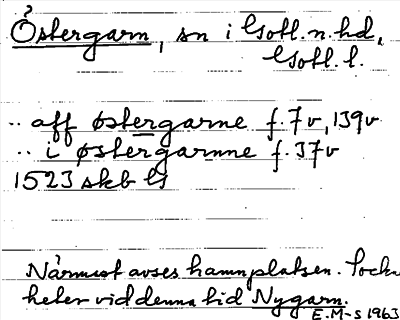 Östergarn, sn i Gotl. n. hd,
Gotl. l.
.. aff østergarne f. 7v, 139v
.. i østergarnne f. 37v
1523 skb G
Närmast avses hamnplatsen. Sockn
heter vid denna tid Nygarn.
E.M-s 1963